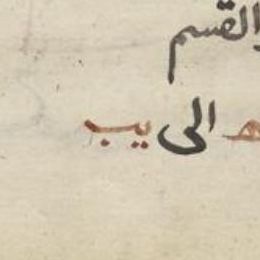 والقسم
ه الى يب